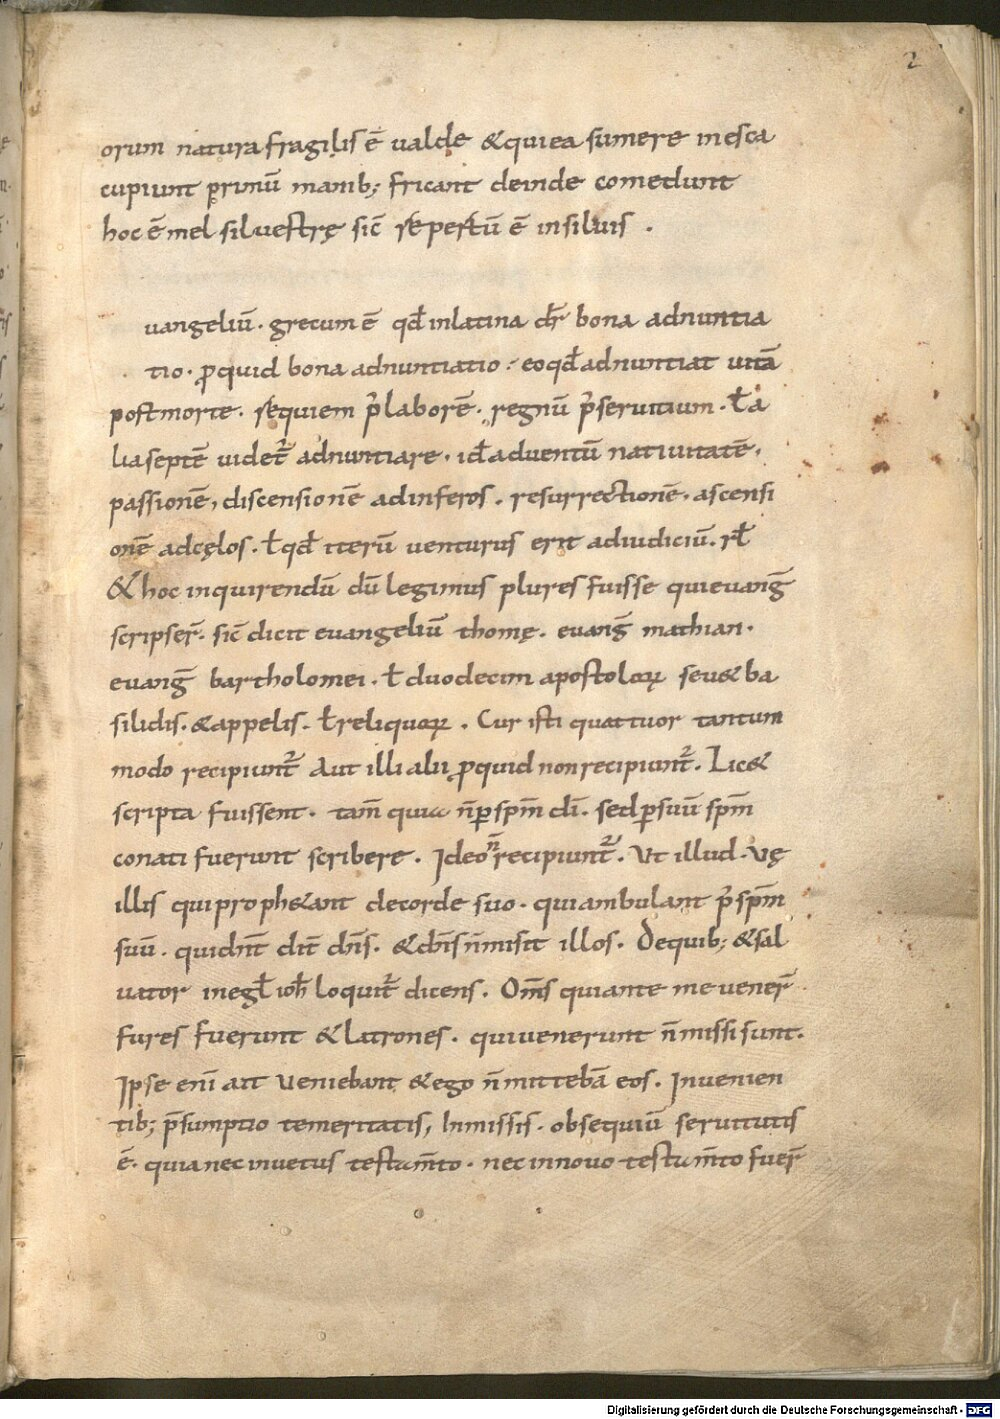 2
orum natura fragilis ē ualde & qui ea sumere in esca
cupiunt primū manib; fricant deinde comedunt
hoc ē mel siluestrę sic̄ repertū ē in siluis .
uangeliū . grecum ē qđ in latina dr̄ bona adnuntia
tio . ꝓ quid bona adnuntiatio : eo qđ adnuntiat uitā
post morte . requiem p̄ laborē . regnū p̄ seruitium . ł a
lia septē uidet᷑ adnuntiare . iđ aduentū natiuitatē .
passionē , discensionē ad inferos . resurrectionē . ascensi
onē ad cęlos . ł qđ iterū uenturus erit ad iudiciū . rł
& hoc inquirendū dū legimus plures fuisse qui euang̅
scripser̄ . sic̄ dicit euangeliū thomę . euang̅ mathian .
euang̅ bartholomei . ł duodecim apostoloꝝ seu & ba
silidis . & appelis . ł reliquoꝝ . Cur isti quattuor tantum
modo recipiunt᷑ Aut illi alii ꝓ quid non recipiunt᷑ . Lic&
scripta fuissent . tam̄ quia n̄ ꝑ spm̄ dī . sed ꝑ suū spm̄
conati fuerunt scribere . Ideo n̄ recipiunt᷑ . Ut illud . Uę
illis qui proph&ant de corde suo . qui ambulant p̄ spm̄
suū . qui dn̄t dit̄ dn̄s . & dn̄s n̄ misit illos . De quib; & sal
uator in egł ioħ loquit᷑ dicens . Om̄s qui ante me uener̄
fures fuerunt & latrones . qui uenerunt n̄ missi sunt .
Ipse enī ait Ueniebant & ego n̄ mittebā eos . In uenien
tib; p̄sumptio temeritatis , In missis . obsequiū seruitutis
ē . quia nec in uetus testam̄to . nec in nouo testam̄to fuer̄
Digitalisierung gefördert durch die Deutsche Forschungsgemeinschaft - DFG